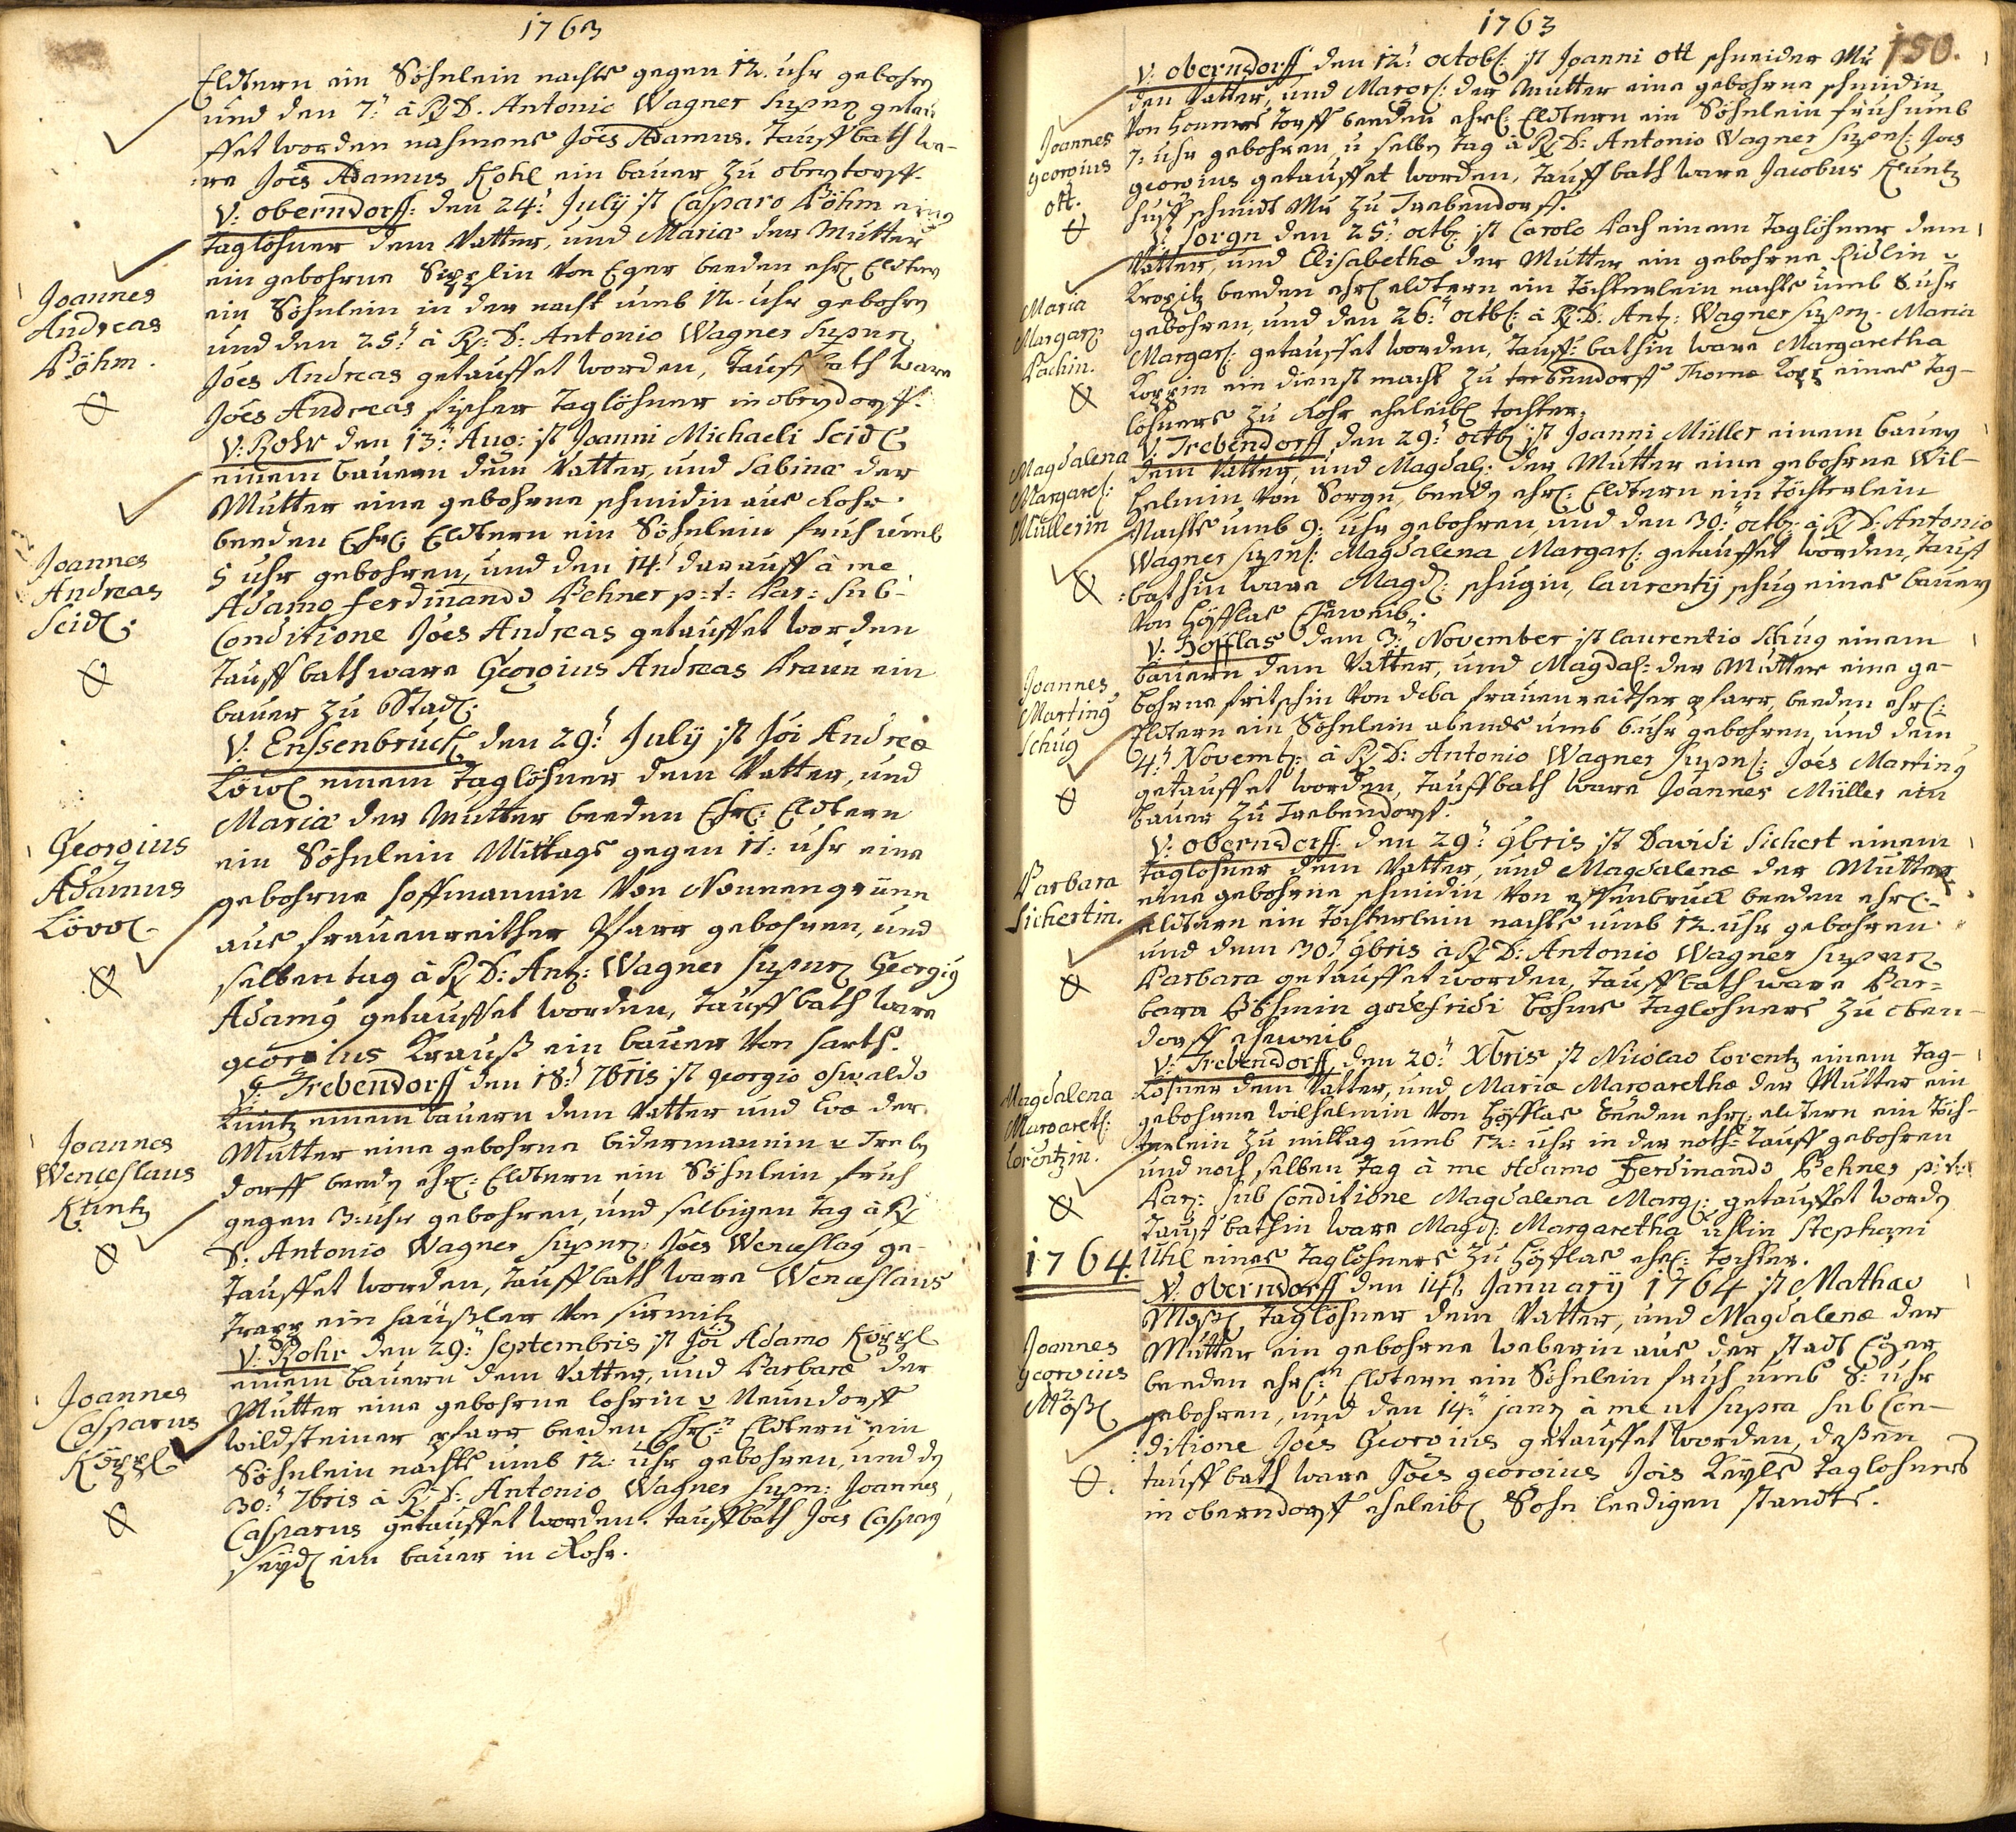 1763
Eldtern ein Söhnlein nachts gegen 12. uhr gebohrn
und den 7: à R D. Antonio Wagner getau
ffet worden nahmens Jöes Adamus. Tauff bath wa-
re Jöes Adamus Kohl ein bauer zu
V: Oberndorff: den 24: July ist Casparo Böhm
Taglöhner dem Vatter, und Mariæ der Mutter
ein gebohrne Sipplin von Eger beeden ehrl Eldtern
ein Söhnlein in der nacht umb 12 uhr gebohrn
und den 25: à R: D: Antonio Wagner
Jöes Andreas getauffet worden, Tauff bath ware
Jöes Andreas fischer Taglöhner in
Joannes
Andreas
Böhm.
V: Rohr den 13: Aug: ist Joanni Michaeli Seidl
einem bauern dem Vatter, und Sabinæ der
Mutter eine gebohrne schmidin aus Rohr.
beeden Ehrl: Eldtern ein Söhnlein fruh umb
5 uhr gebohren, und den 14: darauff à me
Adamo Ferdinando Pehner p: t: Par: sub
Conditione Jöes Andreas getauffet worden
Tauff bath ware Georgius Andreas Braun ein
bauer zu
Joannes
Andreas
Seidl:
V: Enssenbruck den 29: July ist Jöi Andreæ
Löwl einem Taglöhner dem Vatter, und
Mariæ der Mutter beeden Ehrl: Eldtern
ein Söhnlein Mittags gegen 11: uhr eine
gebohrne hoffmannin von Nonnengrüne
aus frauenreither Pfarr gebohren, und
selben tag à R D: Ant: Wagner Georgig
Adamg getauffet worden, Tauff bath ware
georgius Krauß ein bauer von harth.
Georgius
Adamus
Löwl
V: Trebendorff den 18: 7bris ist georgio oswaldo
Kuntz einem bauern dem Vatter und Eva der
Mutter eine gebohrne bidermannin v Treben
dorff beedn ehrl: Eldtern ein Söhnlein fruh
gegen 3: uhr gebohren, und selbigen Tag à R
D: Antonio Wagner Jöes Wenceslag ge-
tauffet worden, Tauff bath ware Wenceslaus
Trapp ein häußler von sirmitz
Joannes
Wenceslaus
Kuntz
V: Rohr den 29: Septembris ist Jöi Adamo Köppl
einem bauern dem Vatter, und Barbaræ der
Mutter eine gebohrne lohrin v Neundorff
wildsteiner pfarr beeden Ehrl: Eldtern ein
Söhnlein nachts umb 12: uhr gebohren, und dn
30: 7bris à R D: Antonio Wagner Joannes
Casparus getauffet worden. tauffbath Jöes Casparg
seydl ein bauer in Rohr.
Joannes
Casparus
Köppl
1763
150.
V: Oberndorff den 12: octob: ist Joanni Ott schneider Mr
den Vatter, und Margr: der Mutter eine gebohrne schmidin
von Hommers dorff beeden ehrl: Eldtern ein Söhnlein fruh umb
7: uhr gebohren u selbn Tag à R D: Antonio Wagner Joes
georgius getauffet worden, Tauff bath ware Jacobus Kuntz
huff schmidt Mr zu Trebendorff.
Joannes
georgius
ott.
V: Sorgn den 25: octb: ist Carolo Pach einem Taglöhner dem
Vatter, und Elisabethæ der Mutter ein gebohrne Ridlin v
Kropitz beeden ehrl eldtern ein Töchterlein nachts umb 8 uhr
gebohren, und den 26: octb: à R: D: Ant: Wagner Maria
Margar: getauffet worden, Tauff: bathin ware Margaretha
Koppin ein dienst macht zu trebendorff Thomæ Kopp eines Tag-
löhners zu Rohr eheleibl tochter.
Maria
Margar:
Pachin.
V: Trebendorff den 29: octb ist Joanni Müller einem bauern
dem Vatter, und Magdal: der Mutter eine gebohrne Wil-
helmin von Sorgn, beedn ehrl: Eldtern ein Töchterlein
Nachts umb 9: uhr gebohren, und den 30: octb: à R D: Antonio
Wagner Magdalena Margar: getauffet worden, Tauff
bathin ware Magd: schugin, laurentij schug eines bauern
von Höfflas Eheweib.
Magdalena
Margaret:
Müllerin
V: Höfflas dem 3: November ist laurentio Schug einem
bauern dem Vatter, und Magdal: der Mutter eine ge-
bohrne fritschin von deba frauenreither pfarr, beeden ehrl:
Eldtern ein Söhnlein abends umb 6 uhr gebohren, und dem
4: Novemb: à R D: Antonio Wagner Jöes Marting
getauffet worden, Tauffbath ware Joannes Müller ein
bauer zu Trebendorff.
Joannes
Marting
Schug
V: Oberndorff: den 29: 9bris ist Davidi Sichert einem
Taglöhner dem Vatter, und Magdalenæ der Mutter
eine gebohrne schmidin von ensenbruck beeden ehrl:
eldtern ein Töchterlein nachts umb 12. uhr gebohren
und dem 30: 9bris à R D: Antonio Wagner
Barbara getauffet worden, Tauff bath ware Bar=
bara Böhmin godefridi böhms Taglohners zu oben-
dorff eheweib
Barbara
Sichertin.
V: Trebendorff den 20: Xbris ist Nicolao Lorentz einem Tag-
löhner dem Vatter, und Mariæ Margarethæ der Mutter ein
gebohrne wilhelmin von Höfflas beeden ehrl: eldtern ein Töch-
terlein zu mittag umb 12: uhr in der noth: Tauff gebohren
und noch selben Tag à me Adamo Ferdinando Pehner p: t:
Par: sub Conditione Magdalena Marg: getauffet wordn
Tauff bathin ware Magd: Margaretha uhlin Stephani
Uhl eines Taglöhners zu Höfflas ehel: Tochter.
Magdalena
Margareth:
Lorentzin.
1764.
V: Oberndorff den 14: January 1764 ist Mathæo
Moßl, Taglöhner dem Vatter, und Magdalenæ der
Mutter ein gebohrne weberin aus der stadt Eger
beeden ehrl: Eldtern ein Söhnlein fruh umb 8: uhr
gebohren, und den 14: jan à me ut supra sub Con-
ditione Joes Georgius getauffet worden, deßen
tauff bath ware Jöes georgius Jois Keyls Taglohners
in oberndorff eheleibl Sohn leedigen standts.
Joannes
georgius
Mößl